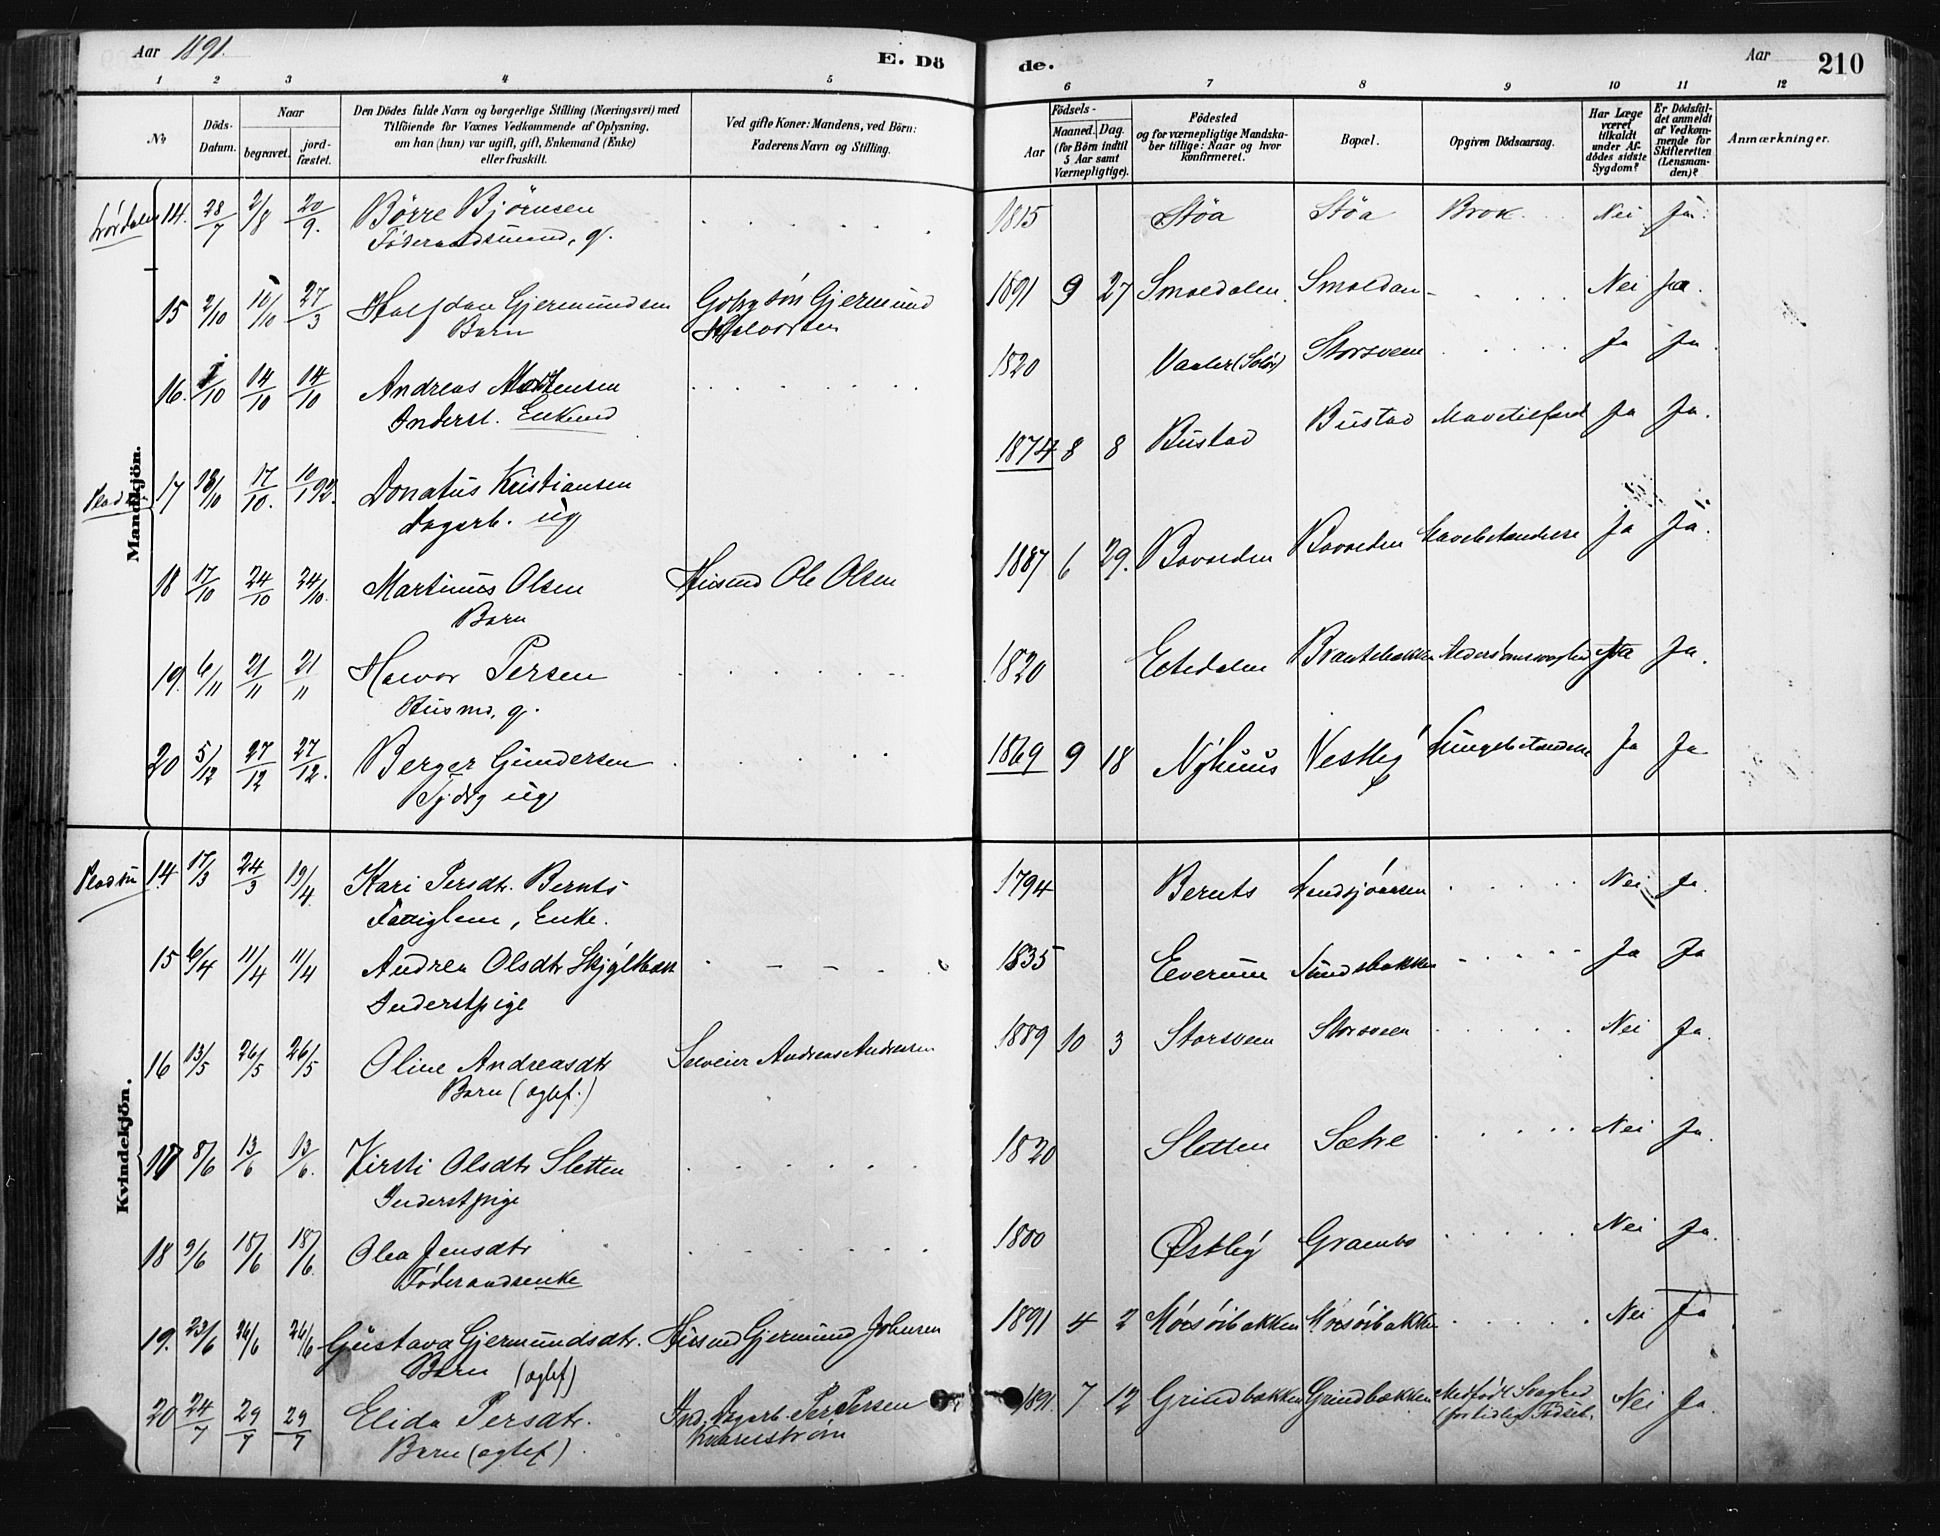 Aar 1891.
E. Dö
de.
Aar
210
1 2 3 4 5 6 7 8 9 10 11 12
No.
Döds-Datum.
Naar
begravet.
jord-fæstet.
Den Dödes fulde Navn og borgerlige Stilling (Næringsvei) med
Tilföiende for Voxnes Vedkommende af Oplysning,
om han (hun) var ugift, gift, Enkemand (Enke)
eller fraskilt.
Ved gifte Koner: Mandens, ved Börn:
Faderens Navn og Stilling.
Födsels-
Aar
Maaned. Dag.
(for Börn indtil
5 Aar samt
Værnepligtige).
Födested
og for værnepligtige Mandska-
ber tillige: Naar og hvor
konfirmeret.
Bopæl.
Opgiven Dödsaarsag.
Har Læge
været
tilkaldt
under Af-
dödes sidste
Sygdom?
Er Dödsfal-
det anmeldt
af Vedkom-
mende for
Skifteretten
(Lensman-
den)?
Anmærkninger.
Mandkjön.
14. 28/7 2/8 20/9. Börre Björnsen 1815 Støa Støa Brok. Nei Ja.
Föderaadsmand, g.
15 2/10 10/10 27/3 Halfdan Gjermundsen Gbrgsön Gjermund 1891 9 27 Smoldalen Smoldan Nei Ja.
Barn Halvorsen
16. /10 14/10 14/10 Andreas Mortensen 1820 Vaaler (Solør) Storsveen Ja Ja.
Inderst. Enkemd
17 /10 17/10. 10/1 92. Donatus Kristiansen 1874 8 8 Bustad Bustad Ja Ja.
Dagarb. ug
18 17/10 24/10 24/10. Martinus Olsen Husmd Ole Olsen 1887 6 29. Ja Ja.
Barn
19. 6/11 21/11 21/11 Halvor Persen 1820 Ja.
Husmd, g.
20 5/12 27/12 27/12. Berger Gundersen 1869 9 18 Nyhuus Nestby Lungebetændelse Ja Ja
Tjdrg ug
Kvindekjön.
14. 17/3 24/3 19/4. Kari Persdtr. Bernts 1794 Bernts Nei Ja.
Fattiglem, Enke.
15 6/4 11/4 11/4 Andrea Olsdtr 1835 Elverum Sundsbakken Ja Ja
Inderstpige
16 13/5 26/5 26/5 Oline Andreasdtr Selveier Andreas Andresen 1889 10 3 Storsveen Storsveen Nei Ja.
Barn (ægtef.)
17 8/6 13/6 13/6. Kirsti Olsdtr Sletten 1820 Sletten Sætre Nei Ja.
Inderstpige
18 9/6 18/6 18/6. Olea Jensdtr 1800 Østby Grambo Nei Ja.
Föderaadsenke
19. 23/6 26/6 26/6 Gustava Gjermundsdtr. Husmd Gjermund Johnsen 1891 4 2 Nei Ja
Barn (ægtef)
20 24/7 29/7 29/7 Elida Persdtr. Ind. Dagarb. Per Persen 1891. 7 12 Grindbakken Grindbakken Medfødt Svaghed Nei Ja.
Barn (ægtef). Kvarnström (fortidlig Fødsel.